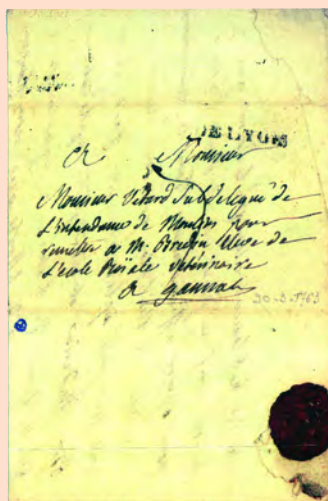 DE LYON
A Monsieur
Monsieur Subdelegué de
L'intendance de Moulins pour
remettre a M. Eleve de
L'ecole Roïale veterinaire
a gannat
30-3-1763